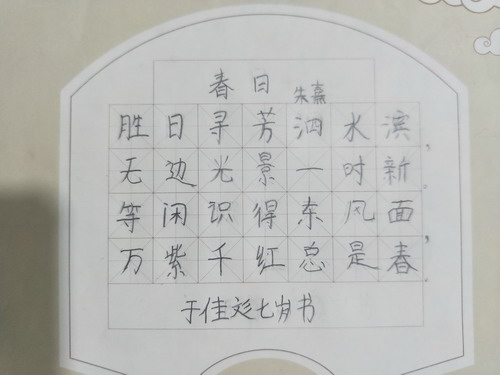 春日
朱熹
胜日寻芳泗水滨,
无边光景一时新
等闲识得东风面,
万紫千红总是春
于佳彣七岁书